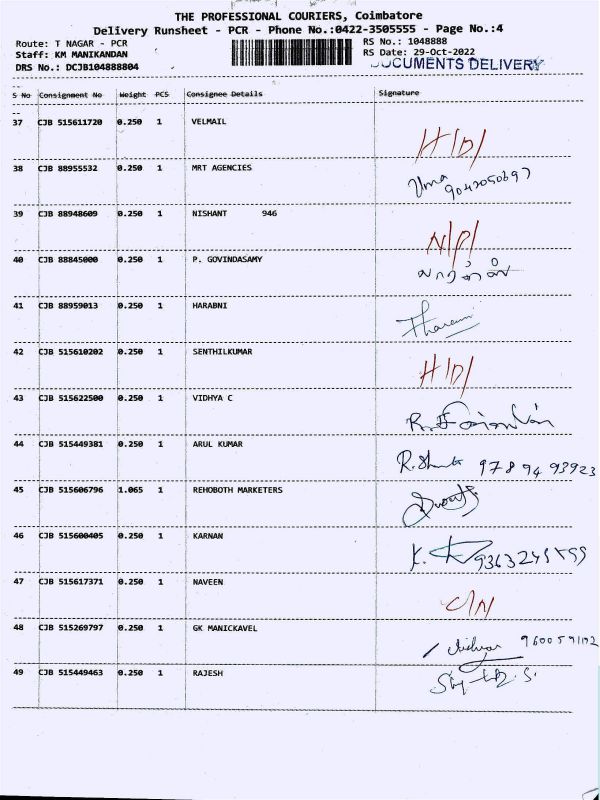 THE PROFESSIONAL COURIERS, Coimbatore
Delivery Runsheet - PCR - Phone No.:0422-3505555 - Page No.:4
Route: T NAGAR - PCR RS No.: 1048888
Staff: KM MANIKANDAN RS Date: 29-Oct-2022
DRS No.: DCJB104888804 DOCUMENTS DELIVERY
S No Consignment No Weight PCS Consignee Details Signature
37 CJB 515611720 0.250 1 VELMAIL
H/D/
38 CJB 88955532 0.250 1 MRT AGENCIES
Uma
39 CJB 88948609 0.250 1 NISHANT 946
N/P/
40 CJB 88845000 0.250 1 P. GOVINDASAMY
41 CJB 88959013 0.250 1 HARABNI
42 CJB 515610202 0.250 1 SENTHILKUMAR
H/D/
43 CJB 515622500 0.250 1 VIDHYA C
44 CJB 515449381 0.250 1 ARUL KUMAR
97894 93923
45 CJB 515606796 1.065 1 REHOBOTH MARKETERS
46 CJB 515600405 0.250 1 KARNAN
47 CJB 515617371 0.250 1 NAVEEN
C/N
48 CJB 515269797 0.250 1 GK MANICKAVEL
49 CJB 515449463 0.250 1 RAJESH